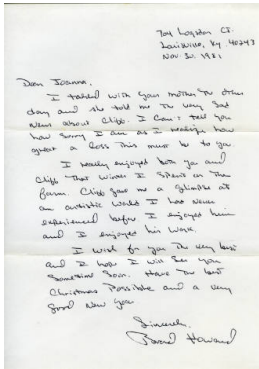 704 Logston Ct.
Louisville, Ky. 40243
Nov. 30. 1981
Dear Joanne,
I talked with your mother the other
day and she told me the very sad
news about Cliff. I can't tell you
how sorry I am as I realize how
great a loss this must be to you.
I really enjoyed both you and
Cliff that winter I spent on the
farm. Cliff gave me a glimpse at
an artistic world I had never
experienced before. I enjoyed him
and I enjoyed his work.
I wish for you the very best
and I hope I will see you
sometime soon. Have the best
Christmas possible and a very
good New Year
Sincerely,
Howard